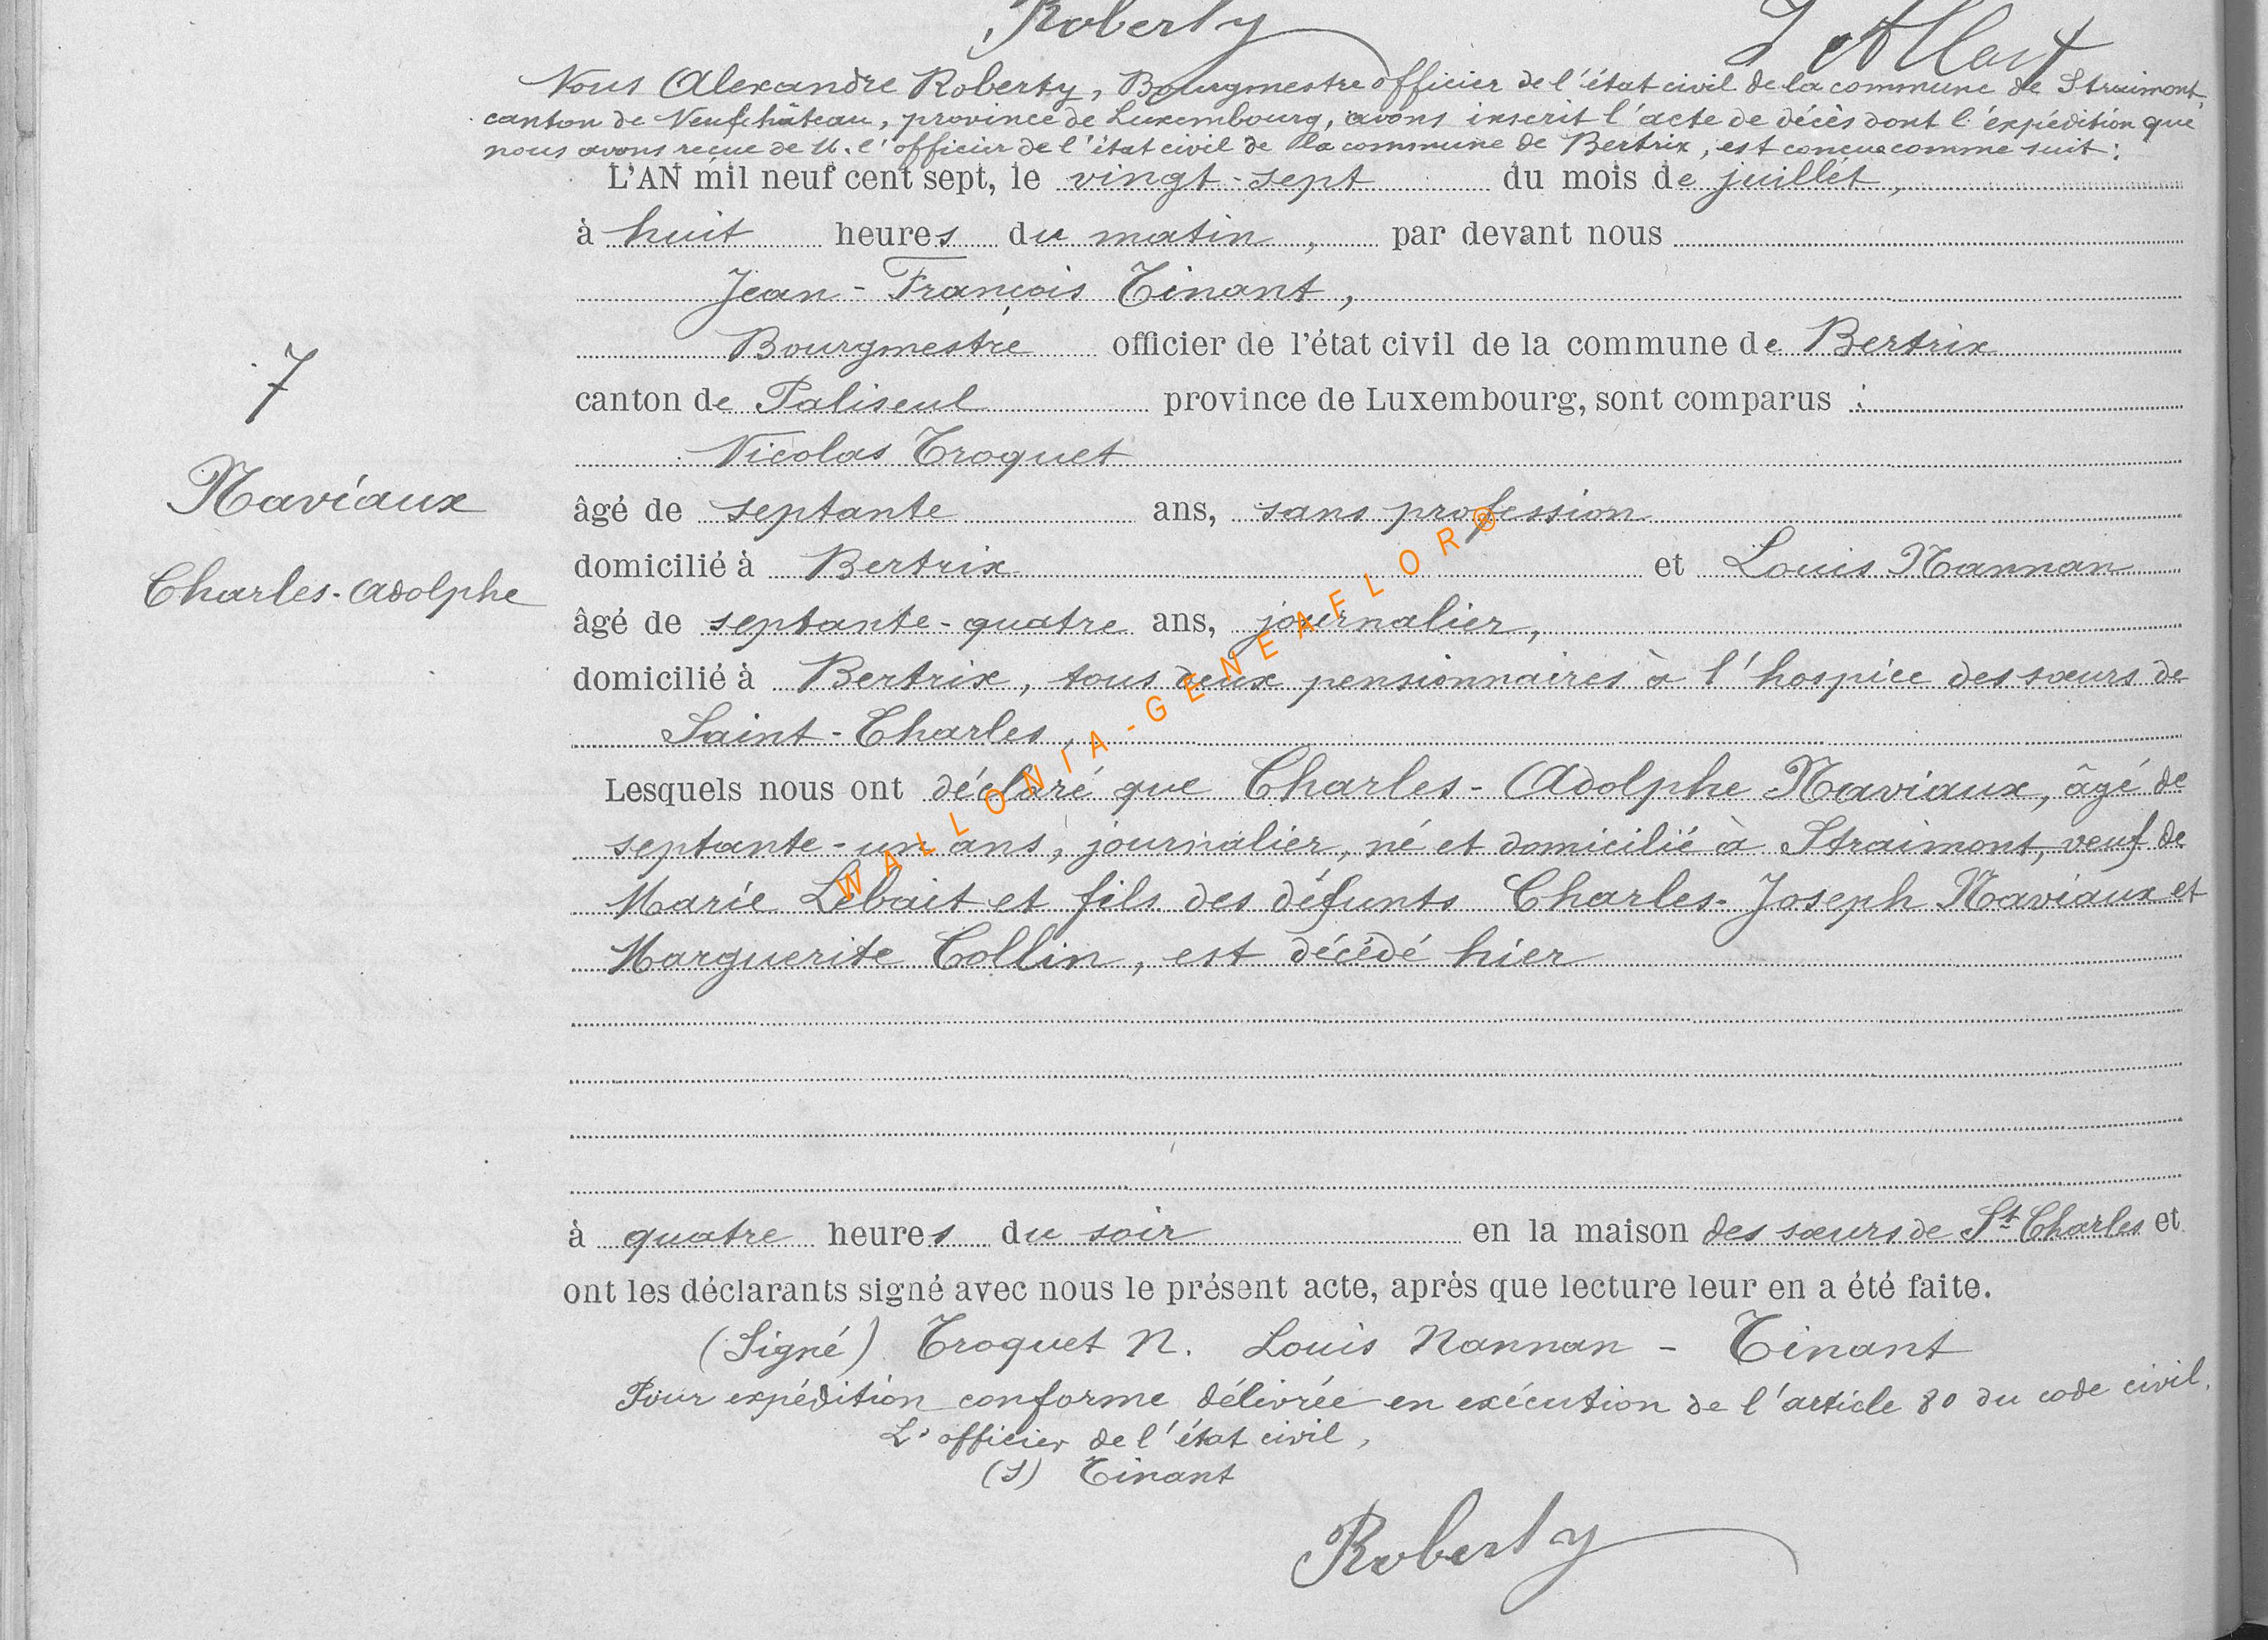 Roberty
Nous Alexandre Roberty, Bourgmestre officier de l'état civil de la commune de Straimont,
canton de Neufchâteau, province de Luxembourg, avons inscrit l'acte de décès dont l'éxpédition que
nous avons reçue de M. l'officier de l'état civil de la commune de Bertrix, est conçue comme suit :
L'AN mil neuf cent sept, le vingt-sept du mois de juillet,
à huit heures du matin, par devant nous
Jean-François Tinant,
Bourgmestre officier de l'état civil de la commune de Bertrix
canton de Paliseul province de Luxembourg, sont comparus :
Nicolas Troquet
âgé de septante ans, sans profession
domicilié à Bertrix et Louis Nannan
âgé de septante-quatre ans, journalier,
domicilié à Bertrix, tous deux pensionnaires à l'hospice des sœurs de
Saint-Charles,
7
Naviaux
Charles-Adolphe
Lesquels nous ont déclaré que Charles-Adolphe Naviaux, âgé de
septante-un ans, journalier, né et domicilié à Straimont, veuf de
Marie Lebait et fils des défunts Charles-Joseph Naviaux et
Marguerite Collin, est décédé hier
à quatre heures du soir en la maison des sœurs de St Charles et
ont les déclarants signé avec nous le présent acte, après que lecture leur en a été faite.
(Signé) Troquet N. Louis Nannan - Tinant
Pour expédition conforme délivrée en exécution de l'article 80 du code civil.
L'officier de l'état civil,
(S) Tinant
Roberty
WALLONIA-GENEAFLOR®